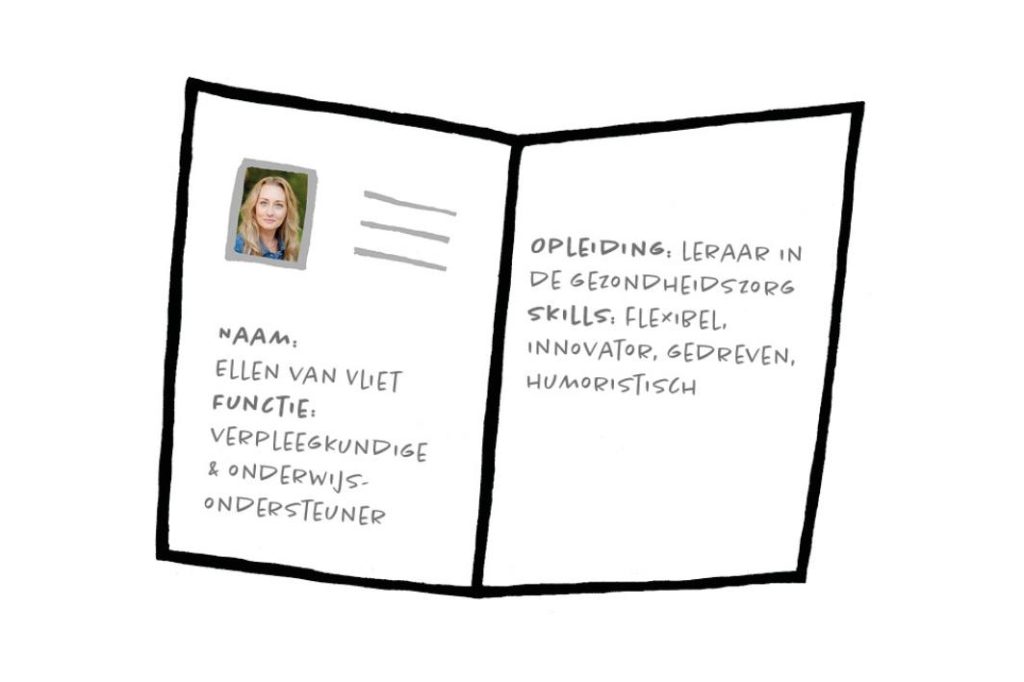 NAAM:
ELLEN VAN VLIET
FUNCTIE:
VERPLEEGKUNDIGE
& ONDERWIJS-
ONDERSTEUNER
OPLEIDING: LERAAR IN
DE GEZONDHEIDSZORG
SKILLS: FLEXIBEL,
INNOVATOR, GEDREVEN,
HUMORISTISCH